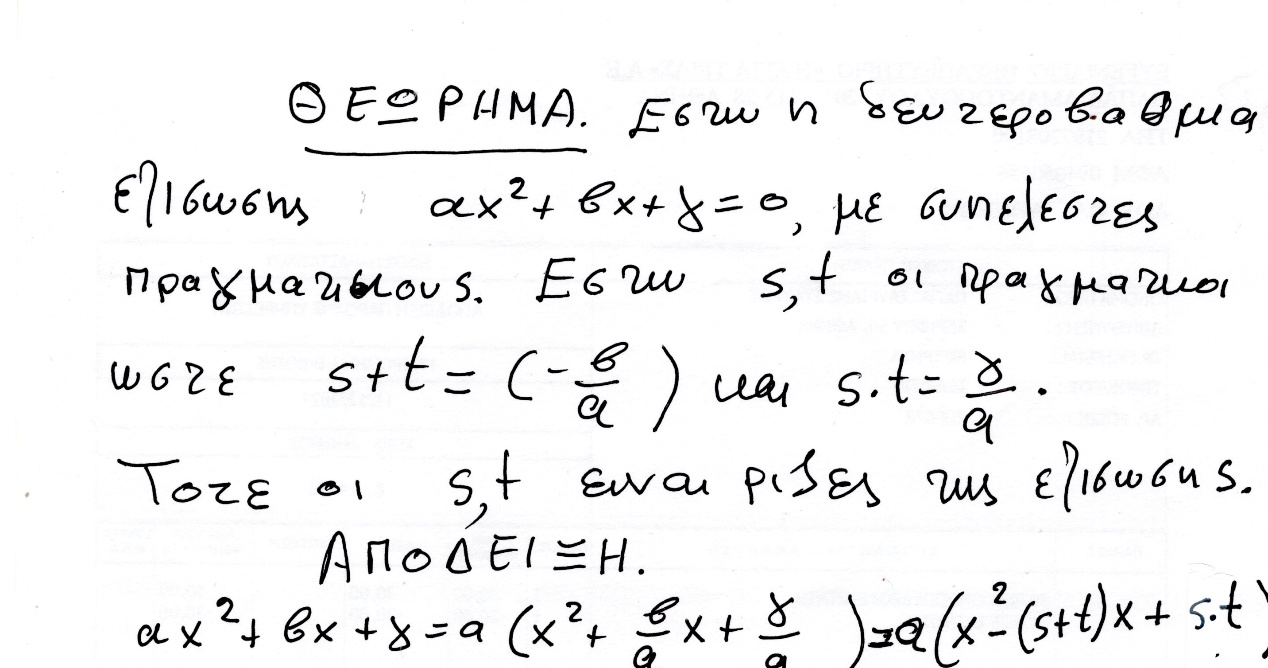 ΘΕΩΡΗΜΑ. Εστω η δευτεροβαθμια
εξισωσης αx²+βx+γ=0, με συντελεστες
πραγματικους. Εστω s,t οι πραγματικοι
ωστε s+t=(-β/α) και s.t=γ/α.
Τοτε οι s,t ειναι ριζες της εξισωσης.
ΑΠΟΔΕΙΞΗ.
αx²+βx+γ=α(x²+β/α x+γ/α)=α(x²-(s+t)x+s.t)